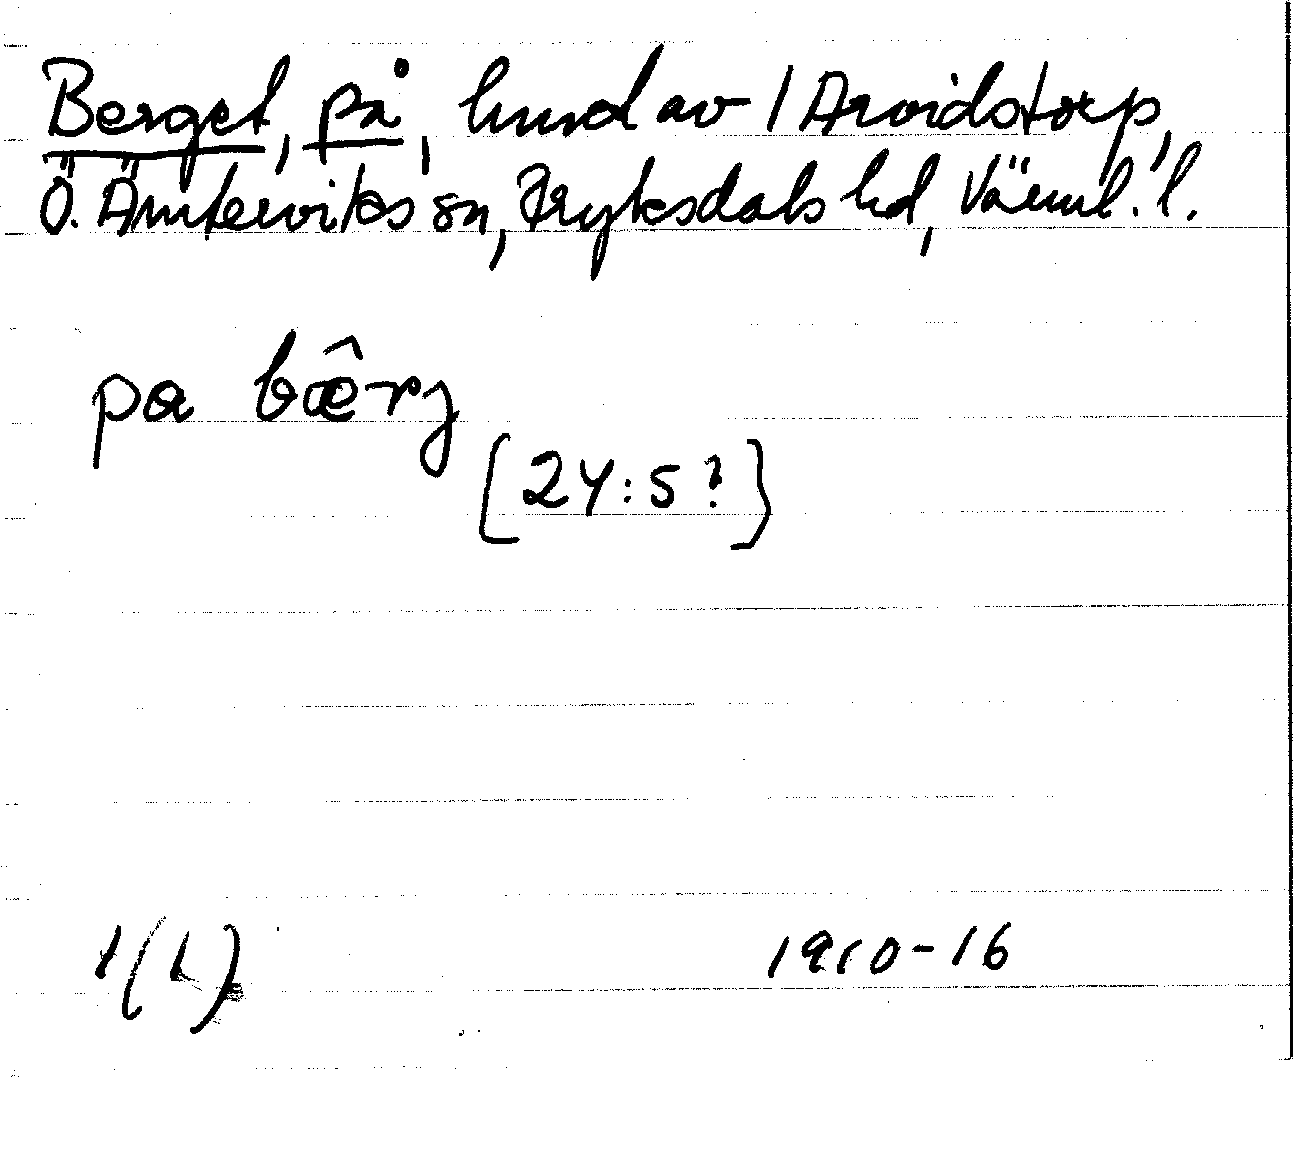 Berget, på, hund av 1 Arvidstorp,
Ö. Ämterviks sn, Fryksdals hd, Värml. l.
pa bæ̂rj
[24:5?]
1(1)
1910-16